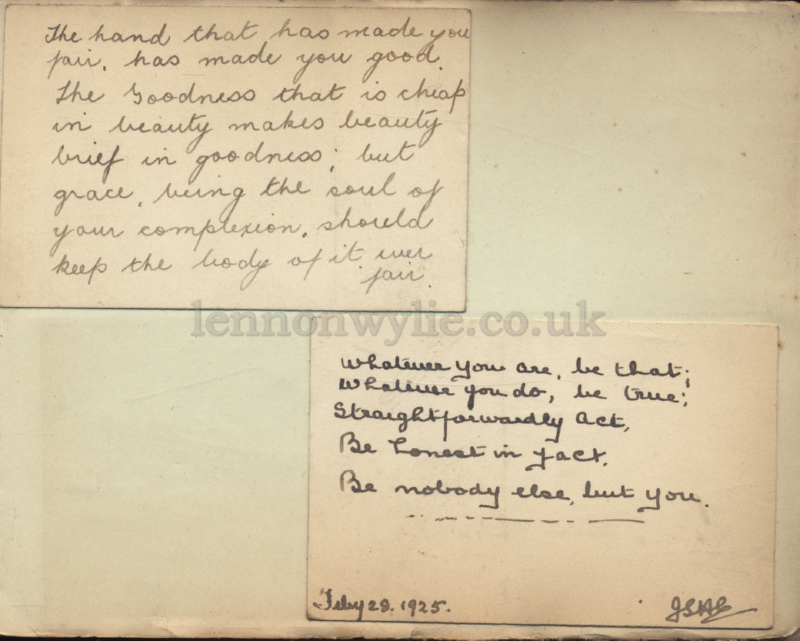 The hand that has made you
fair, has made you good.
The Goodness that is cheap
in beauty makes beauty
brief in goodness; but
grace, being the soul of
your complexion, should
keep the body of it ever
fair.
lennonwylie.co.uk
Whatever you are, be that;
Whatever you do, be true;
Straightforwardly act,
Be honest in fact,
Be nobody else, but you.
Feby 28. 1925.